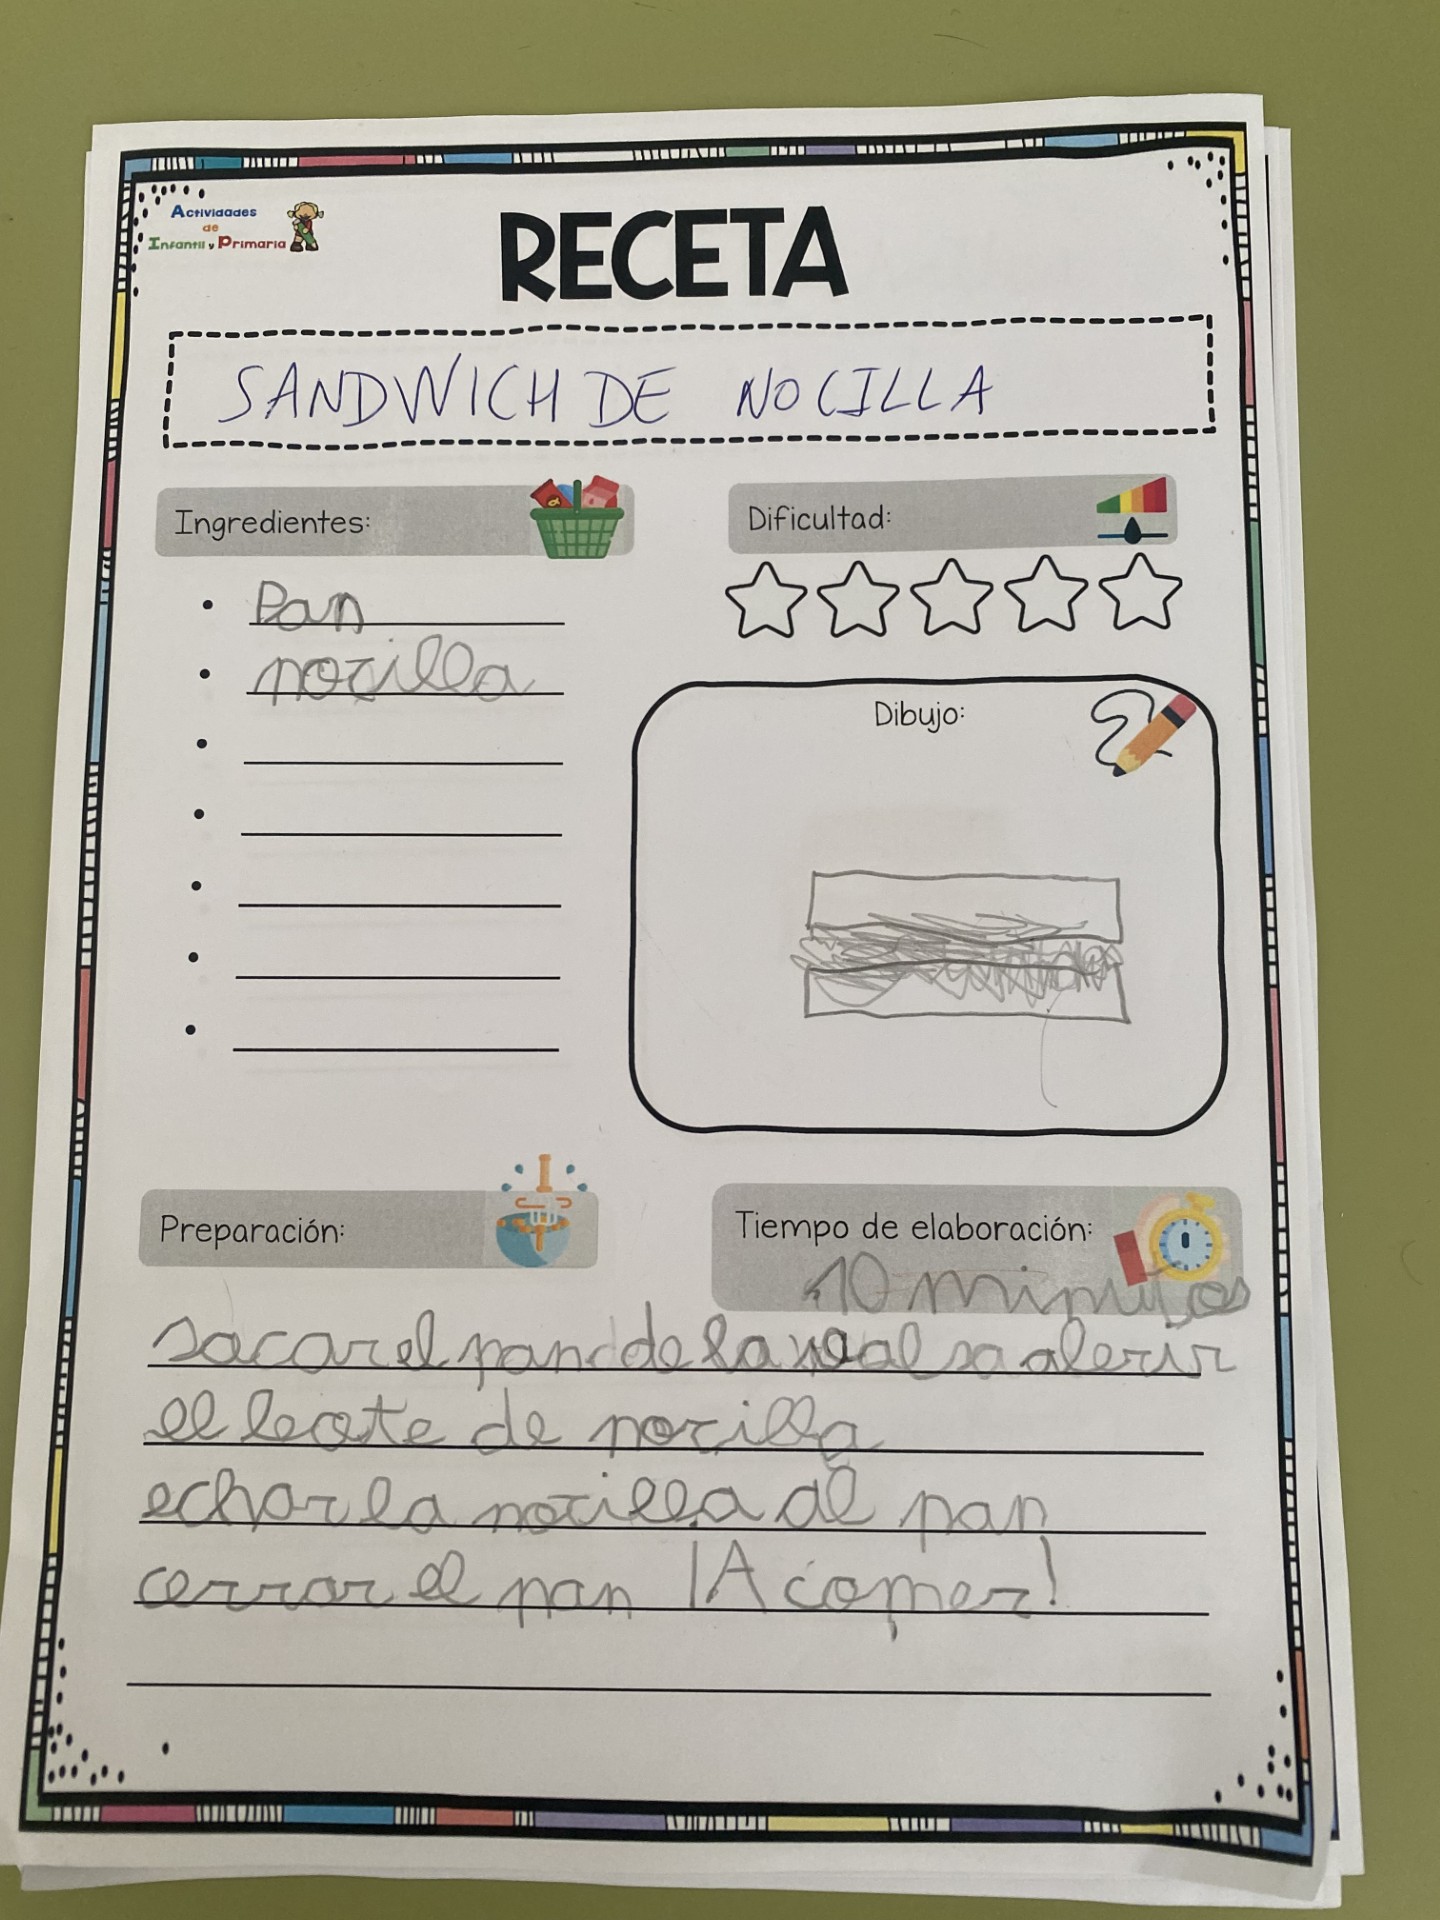 Actividades
de
Infantil y Primaria
RECETA
SANDWICH DE NOCILLA
Ingredientes:
Dificultad:
Pan
nocilla
Dibujo:
Preparación:
Tiempo de elaboración:
10 minutos
sacar el pan de la bolsa abrir
el bote de nocilla
echar la nocilla al pan
cerrar el pan ¡A comer!